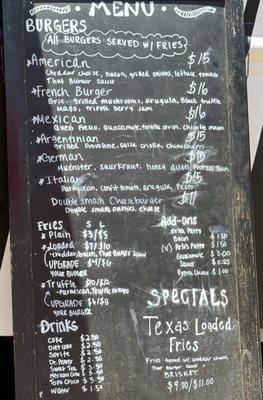 MENU
BURGERS
All BURGERS SERVED W/ FRIES
American $15
Cheddar cheese, bacon, grilled onions, lettuce, tomato
That Burger Sauce
French Burger $16
Brie, grilled mushrooms, arugula, Black truffle
mayo, triple berry jam
Mexican $16
Queso Fresco, Guacamole, tortilla strips, Chipotle mayo
Argentinian $15
Grilled Provolone, salsa criolla, chimichurri
German $15
Muenster, saurkraut, honey dijon, Pretzel Bun
Italian $15
Parmesan, confit tomato, arugula, Pesto
Double Smash Cheeseburger $11
Double smash patties, cheese
Fries S L
Plain $3/$5
Loaded $7/$10
cheddar, bacon, That Burger Sauce
UPGRADE $4/$6
YOUR BURGER
Truffle $10/$12
Parmesan, Truffle mayo
UPGRADE $6/$8
YOUR BURGER
Add-ons
Extra Patty
Bacon $1.50
Patty $1.50
Guacamole $3.00
Sauce $0.25
Extra Cheese $1.00
SPECIALS
Texas Loaded
Fries
Fries topped w/ cheddar cheese,
That Burger Sauce
BRISKET
$9.00/$11.00
Drinks
Coke $2.50
Diet Coke $2.50
Sprite $2.50
Dr. Pepper $2.50
Sweet Tea $3.50
Mexican Coke $3.50
Topo Chico $3.50
Water $1.50